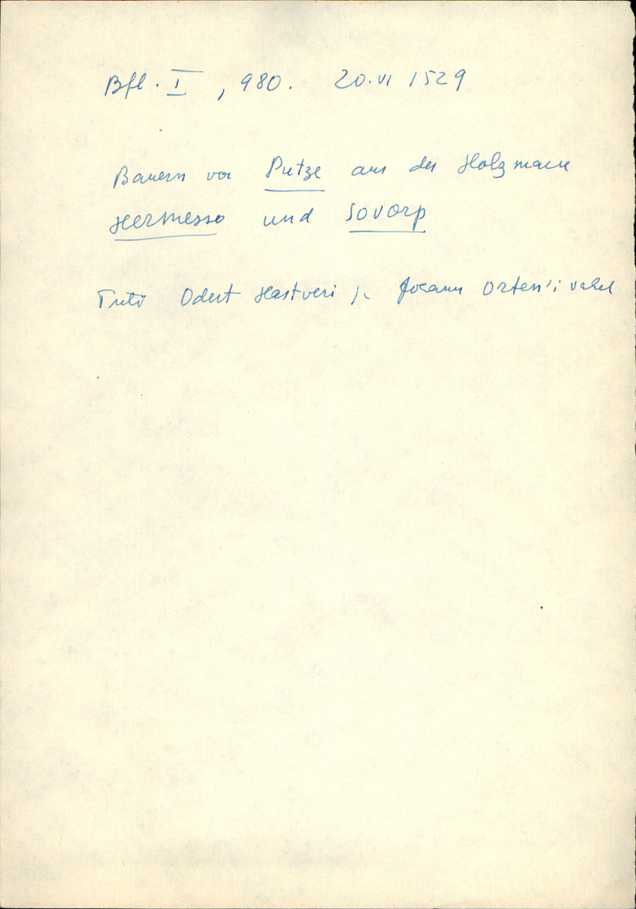 Bfl. I, 980. 20.VI 1529
Bauern von Putze aus der Holzmark
Hermesso und Sovorp
Odert Hastveri ja Johann Orten'i vahel